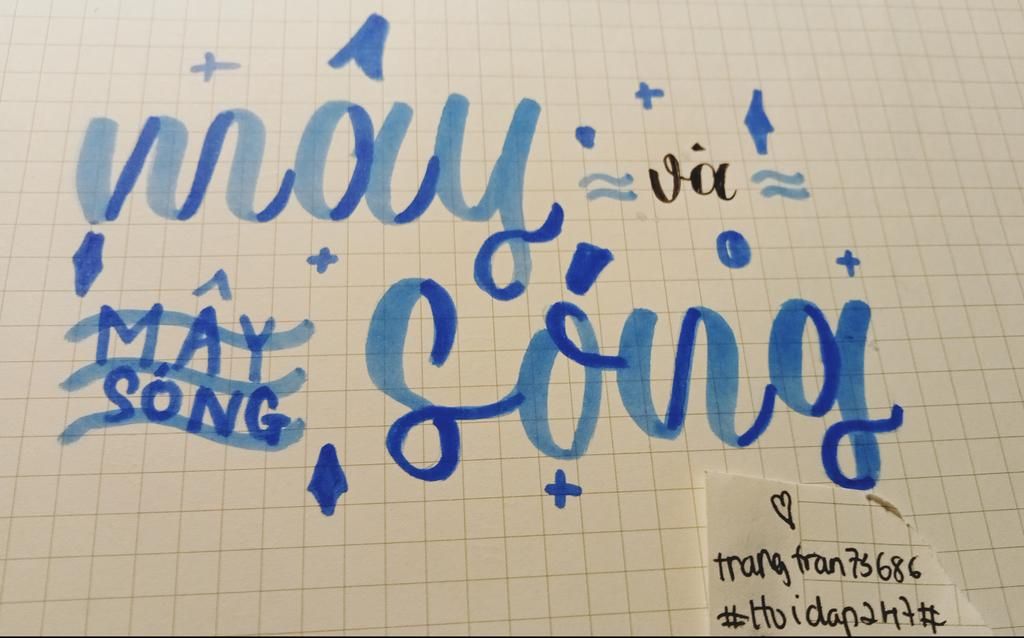 mây và
sóng
MÂY
SÓNG
trangtran73686
#Hoidap247#